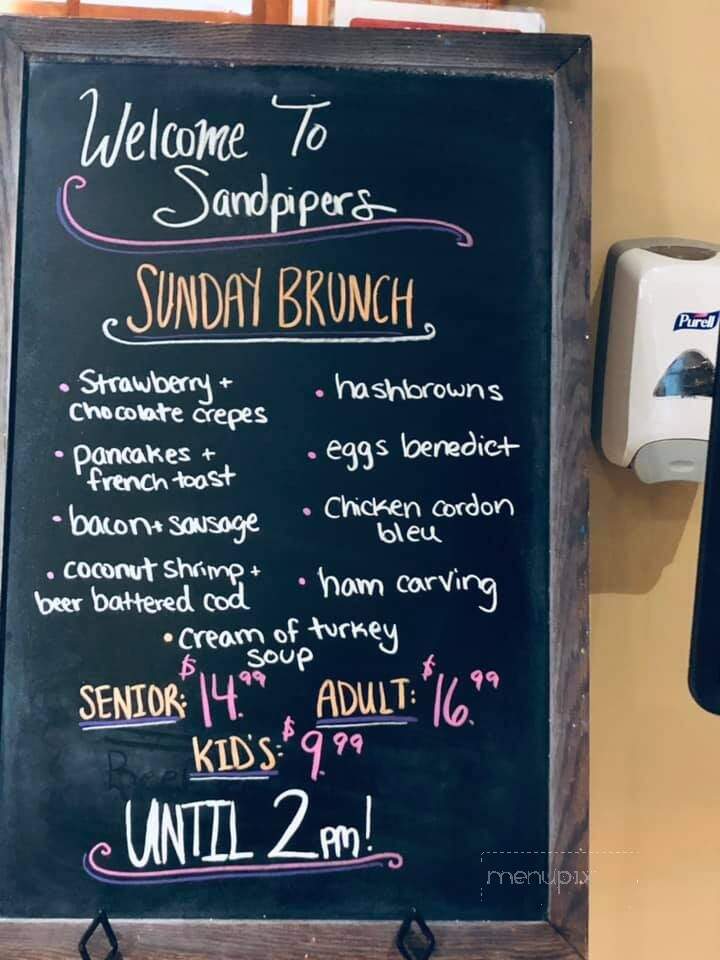 Welcome To
Sandpipers
SUNDAY BRUNCH
• Strawberry +
chocolate crepes
• pancakes +
french toast
• bacon + sausage
• coconut shrimp +
beer battered cod
• hashbrowns
• eggs benedict
• Chicken cordon
bleu
• ham carving
• cream of turkey
soup
SENIOR: $14.99
ADULT: $16.99
KID'S: $9.99
UNTIL 2pm!
Purell
menupix